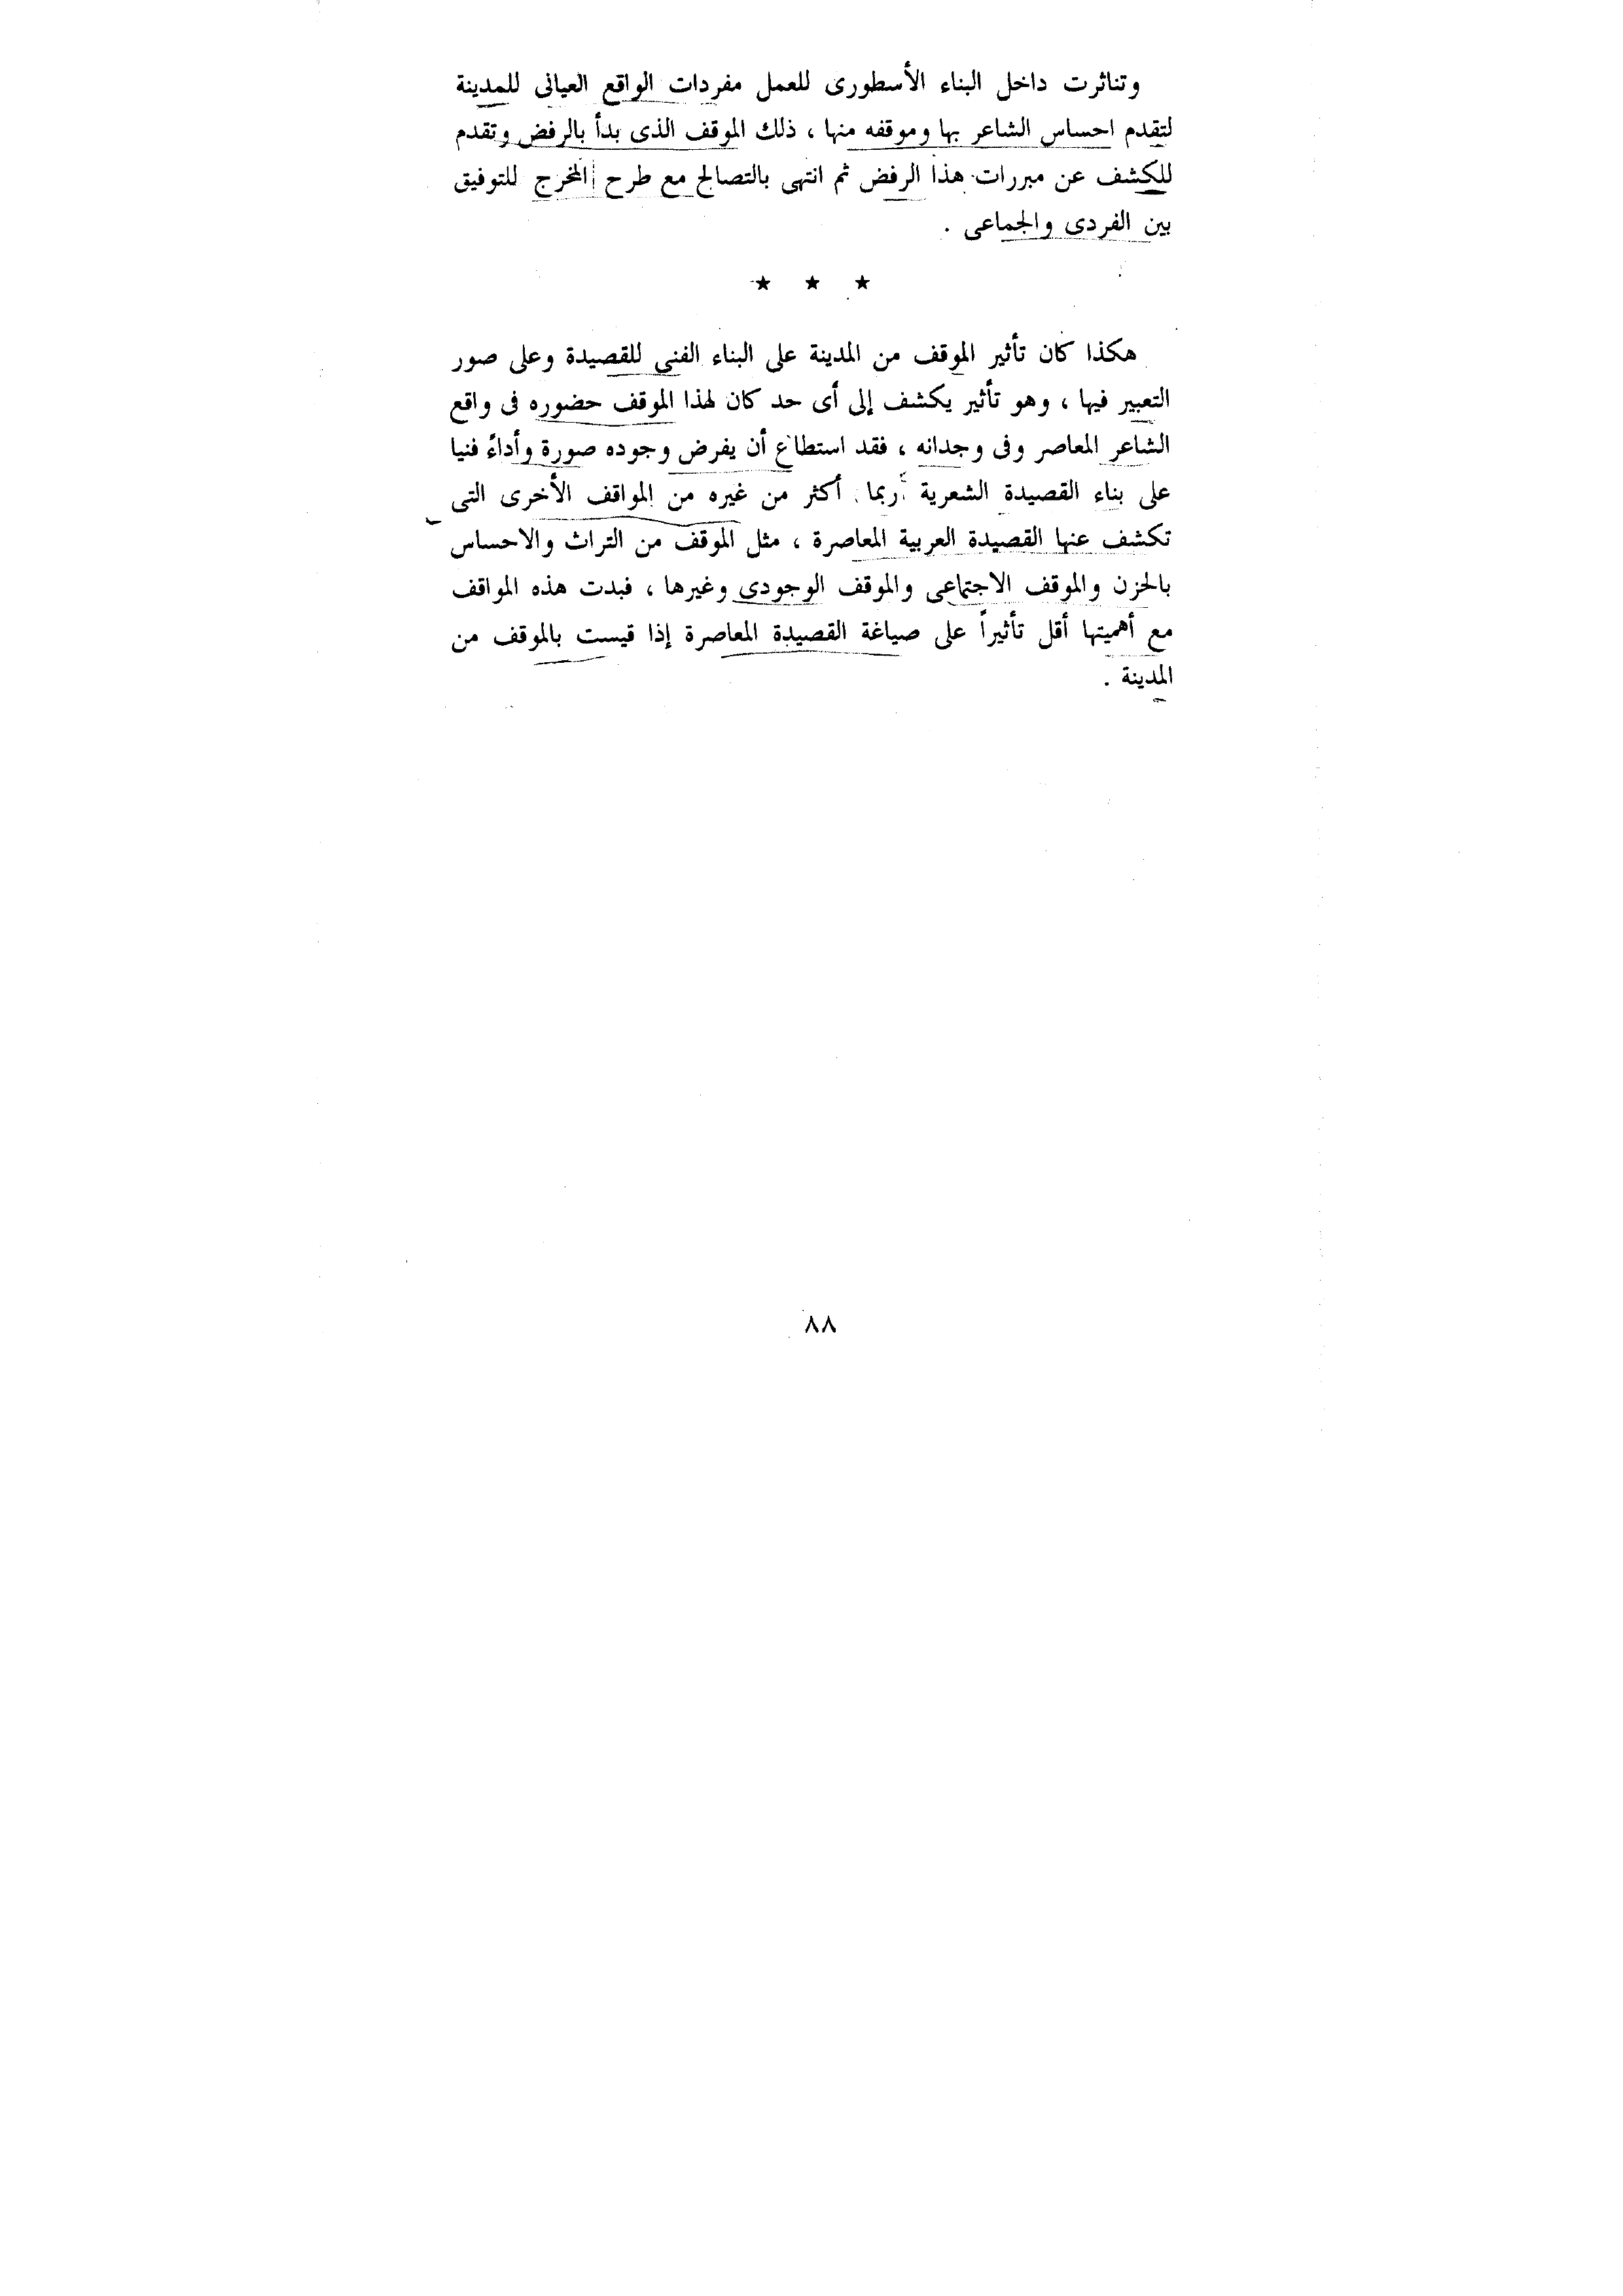 وتناثرت داخل البناء الأسطورى للعمل مفردات الواقع العيانى للمدينة
لتقدم احساس الشاعر بها وموقفه منها ، ذلك الموقف الذى بدأ بالرفض وتقدم
للكشف عن مبررات هذا الرفض ثم انتهى بالتصالح مع طرح المخرج للتوفيق
بين الفردى والجماعى .
★ ★ ★
هكذا كان تأثير الموقف من المدينة على البناء الفنى للقصيدة وعلى صور
التعبير فيها ، وهو تأثير يكشف إلى أى حد كان لهذا الموقف حضوره فى واقع
الشاعر المعاصر وفى وجدانه ، فقد استطاع أن يفرض وجوده صورة وأداءً فنيا
على بناء القصيدة الشعرية ربما أكثر من غيره من المواقف الأخرى التى
تكشف عنها القصيدة العربية المعاصرة ، مثل الموقف من التراث والاحساس
بالحزن والموقف الاجتماعى والموقف الوجودى وغيرها ، فبدت هذه المواقف
مع أهميتها أقل تأثيراً على صياغة القصيدة المعاصرة إذا قيست بالموقف من
المدينة .
٨٨